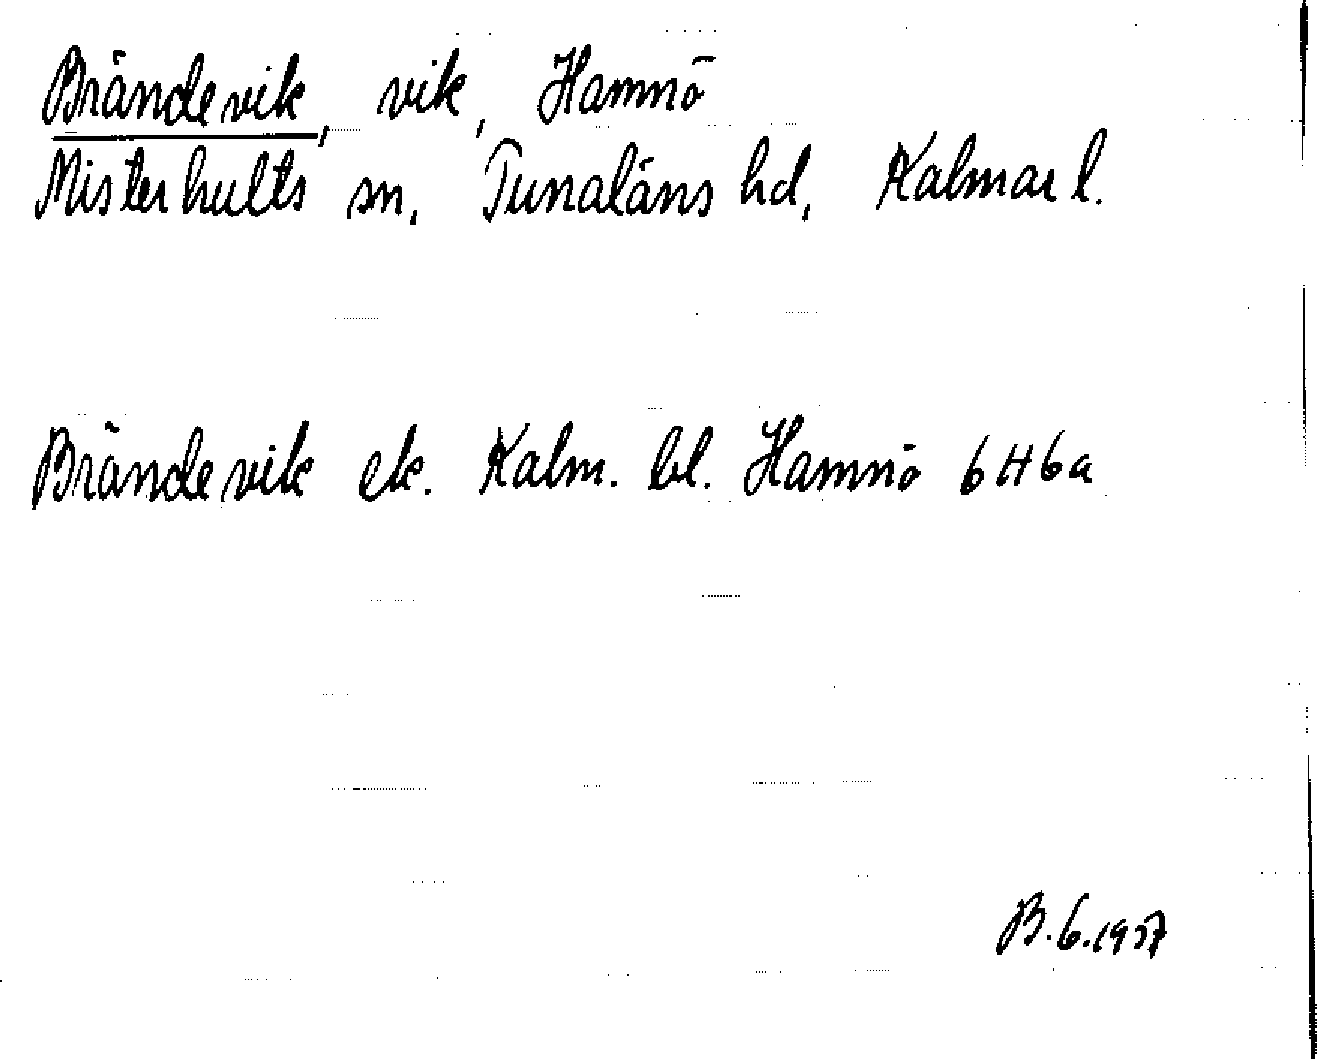 Brändevik, vik, Hamnö
Misterhults sn, Tunaläns hd, Kalmar l.
Brändevik ek. Kalm. bl. Hamnö 6H6a
B.6.1957